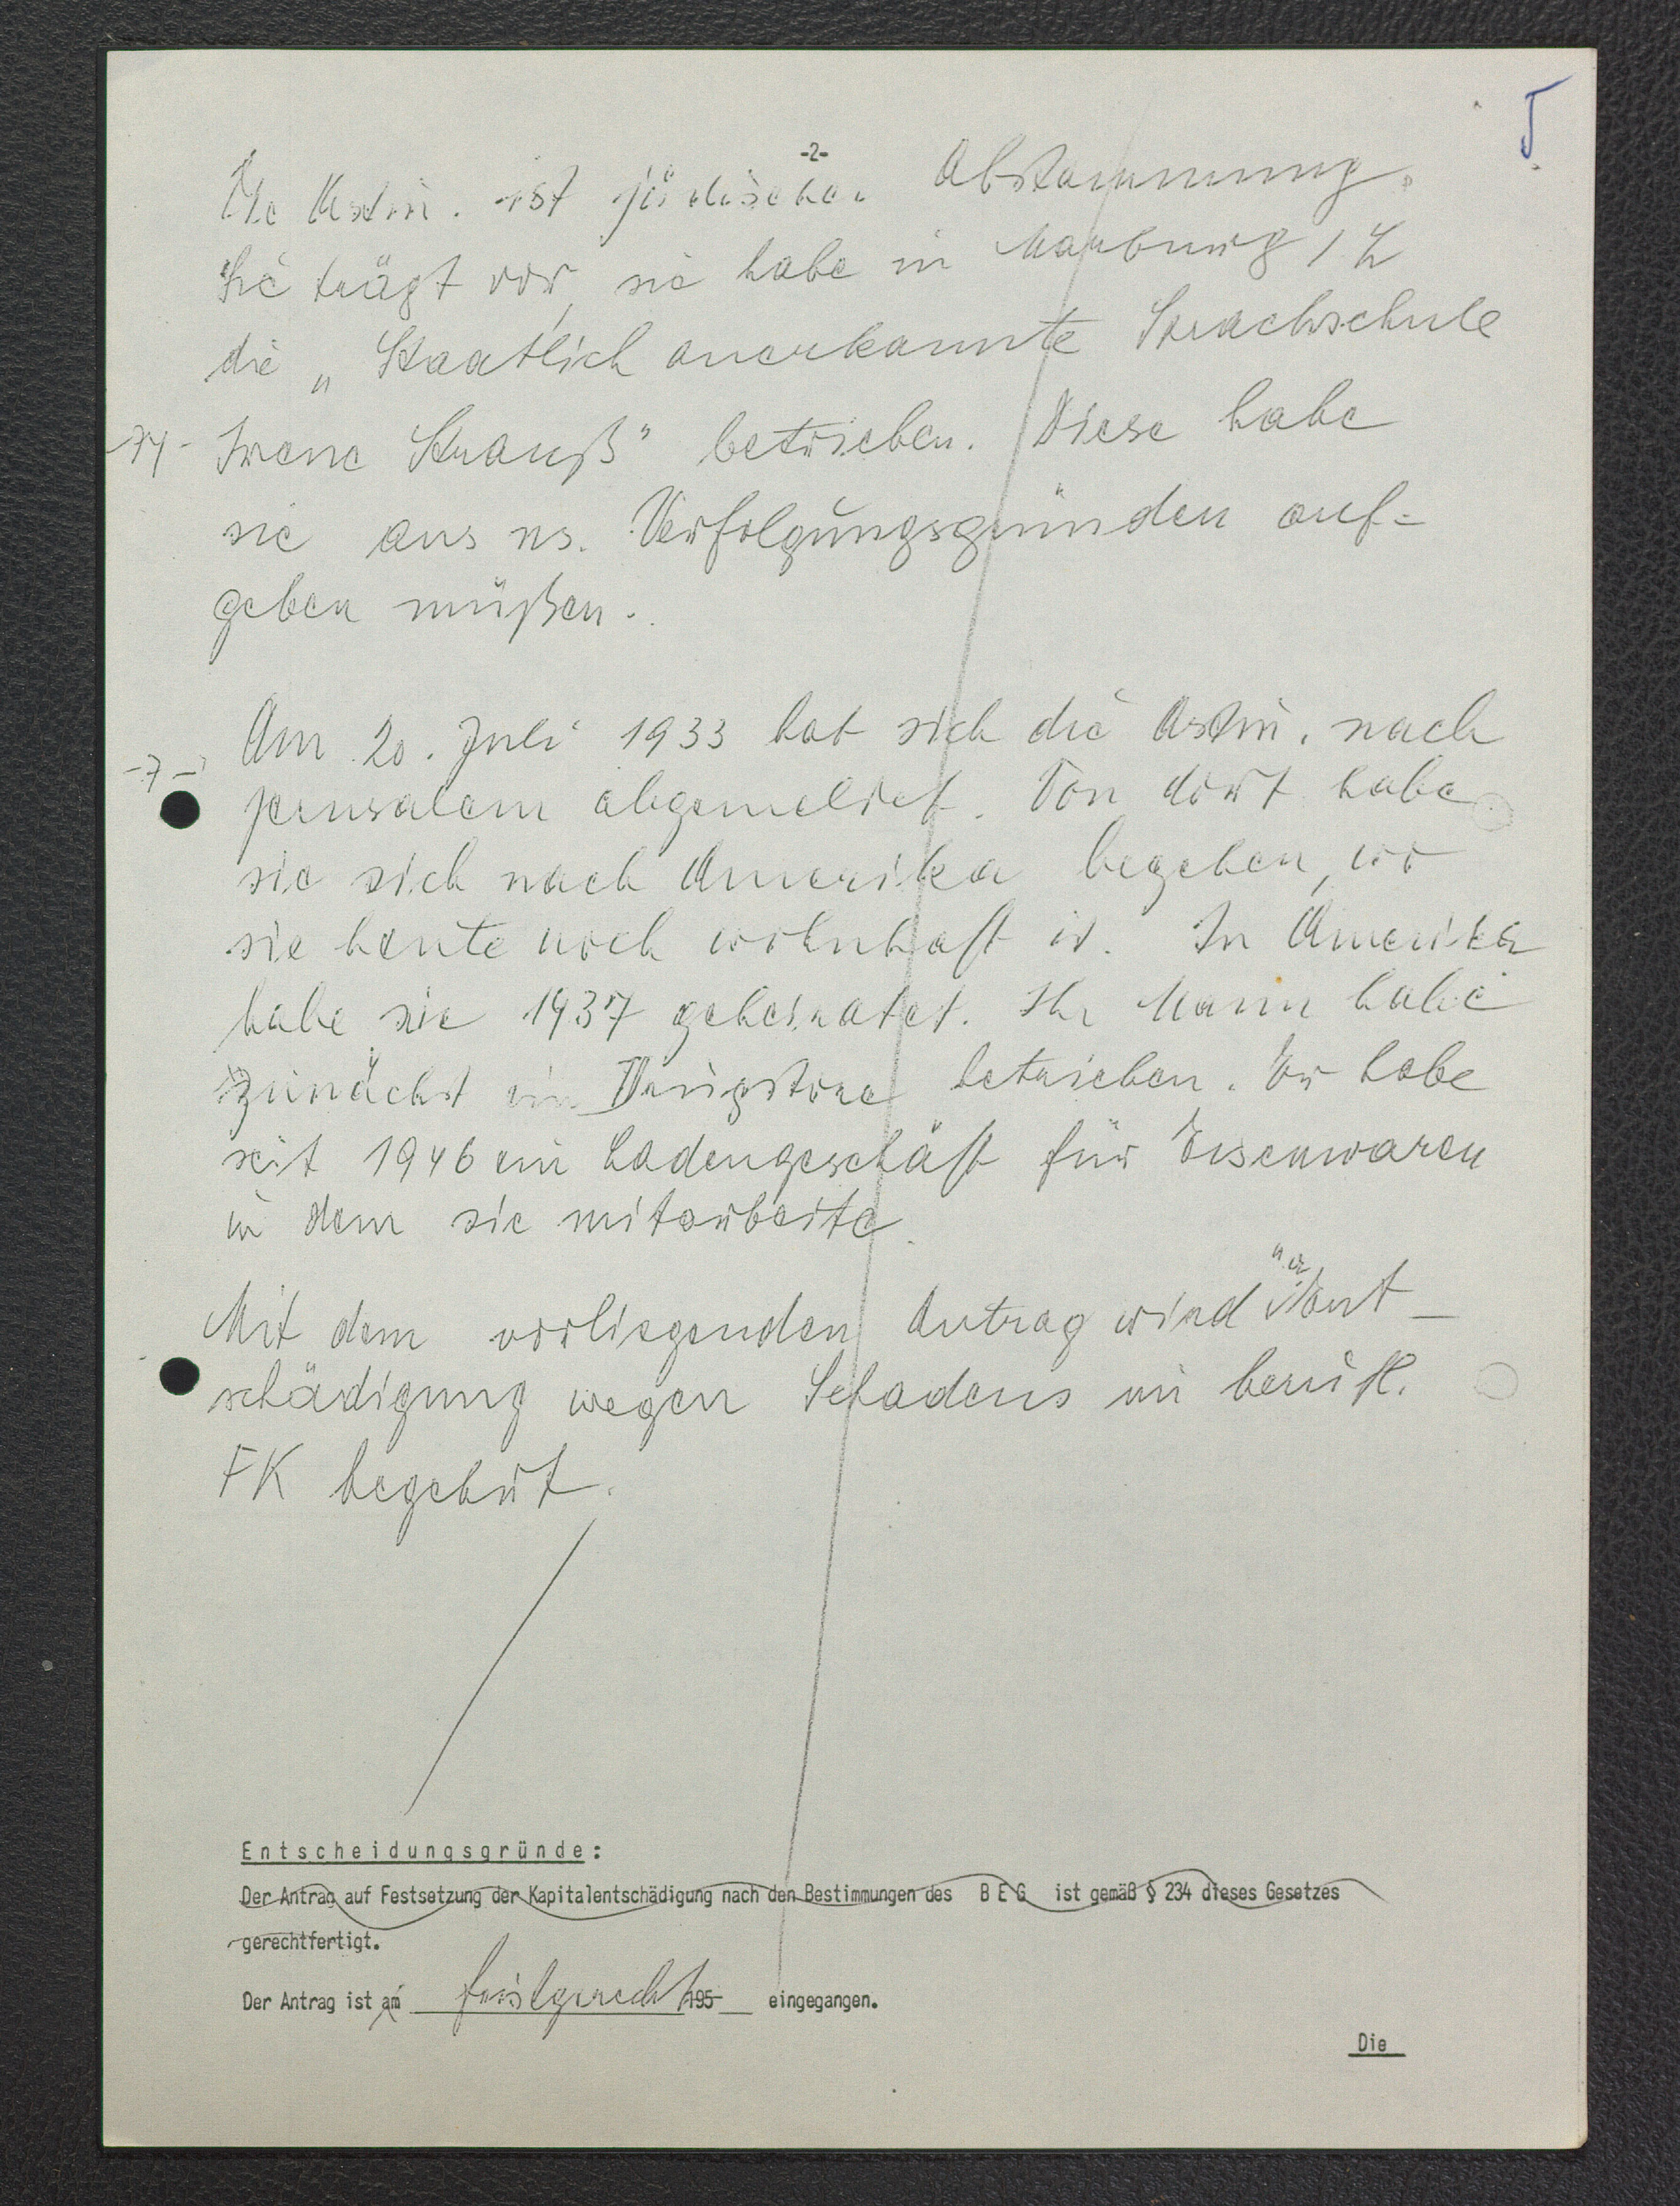 5.
-2-
Die Astin. ist jüdischer Abstammung.
Sie trägt vor, sie habe in Marburg / L
die „Staatlich anerkannte Sprachschule
-74- Irene Strauß" betrieben. Diese habe
sie aus ns. Verfolgungsgründen auf=
geben müßen.
Am 20. Juli 1933 hat sich die Astin. nach
-7- Jerusalem abgemeldet. Von dort habe
sie sich nach Amerika begeben, wo
sie heute noch wohnhaft ist. In Amerika
habe sie 1937 geheiratet. Ihr Mann habe
zunächst ein Drugstore betrieben. Er habe
seit 1946 ein Ladengeschäft für Eisenwaren
in dem sie mitarbeite.
Mit dem vorliegenden Antrag wird Ent-
schädigung wegen Schadens im berufl.
FK begehrt.
Entscheidungsgründe:
Der Antrag auf Festsetzung der Kapitalentschädigung nach den Bestimmungen des B E G ist gemäß § 234 dieses Gesetzes
gerechtfertigt.
Der Antrag ist am fristgerecht 195 eingegangen.
Die